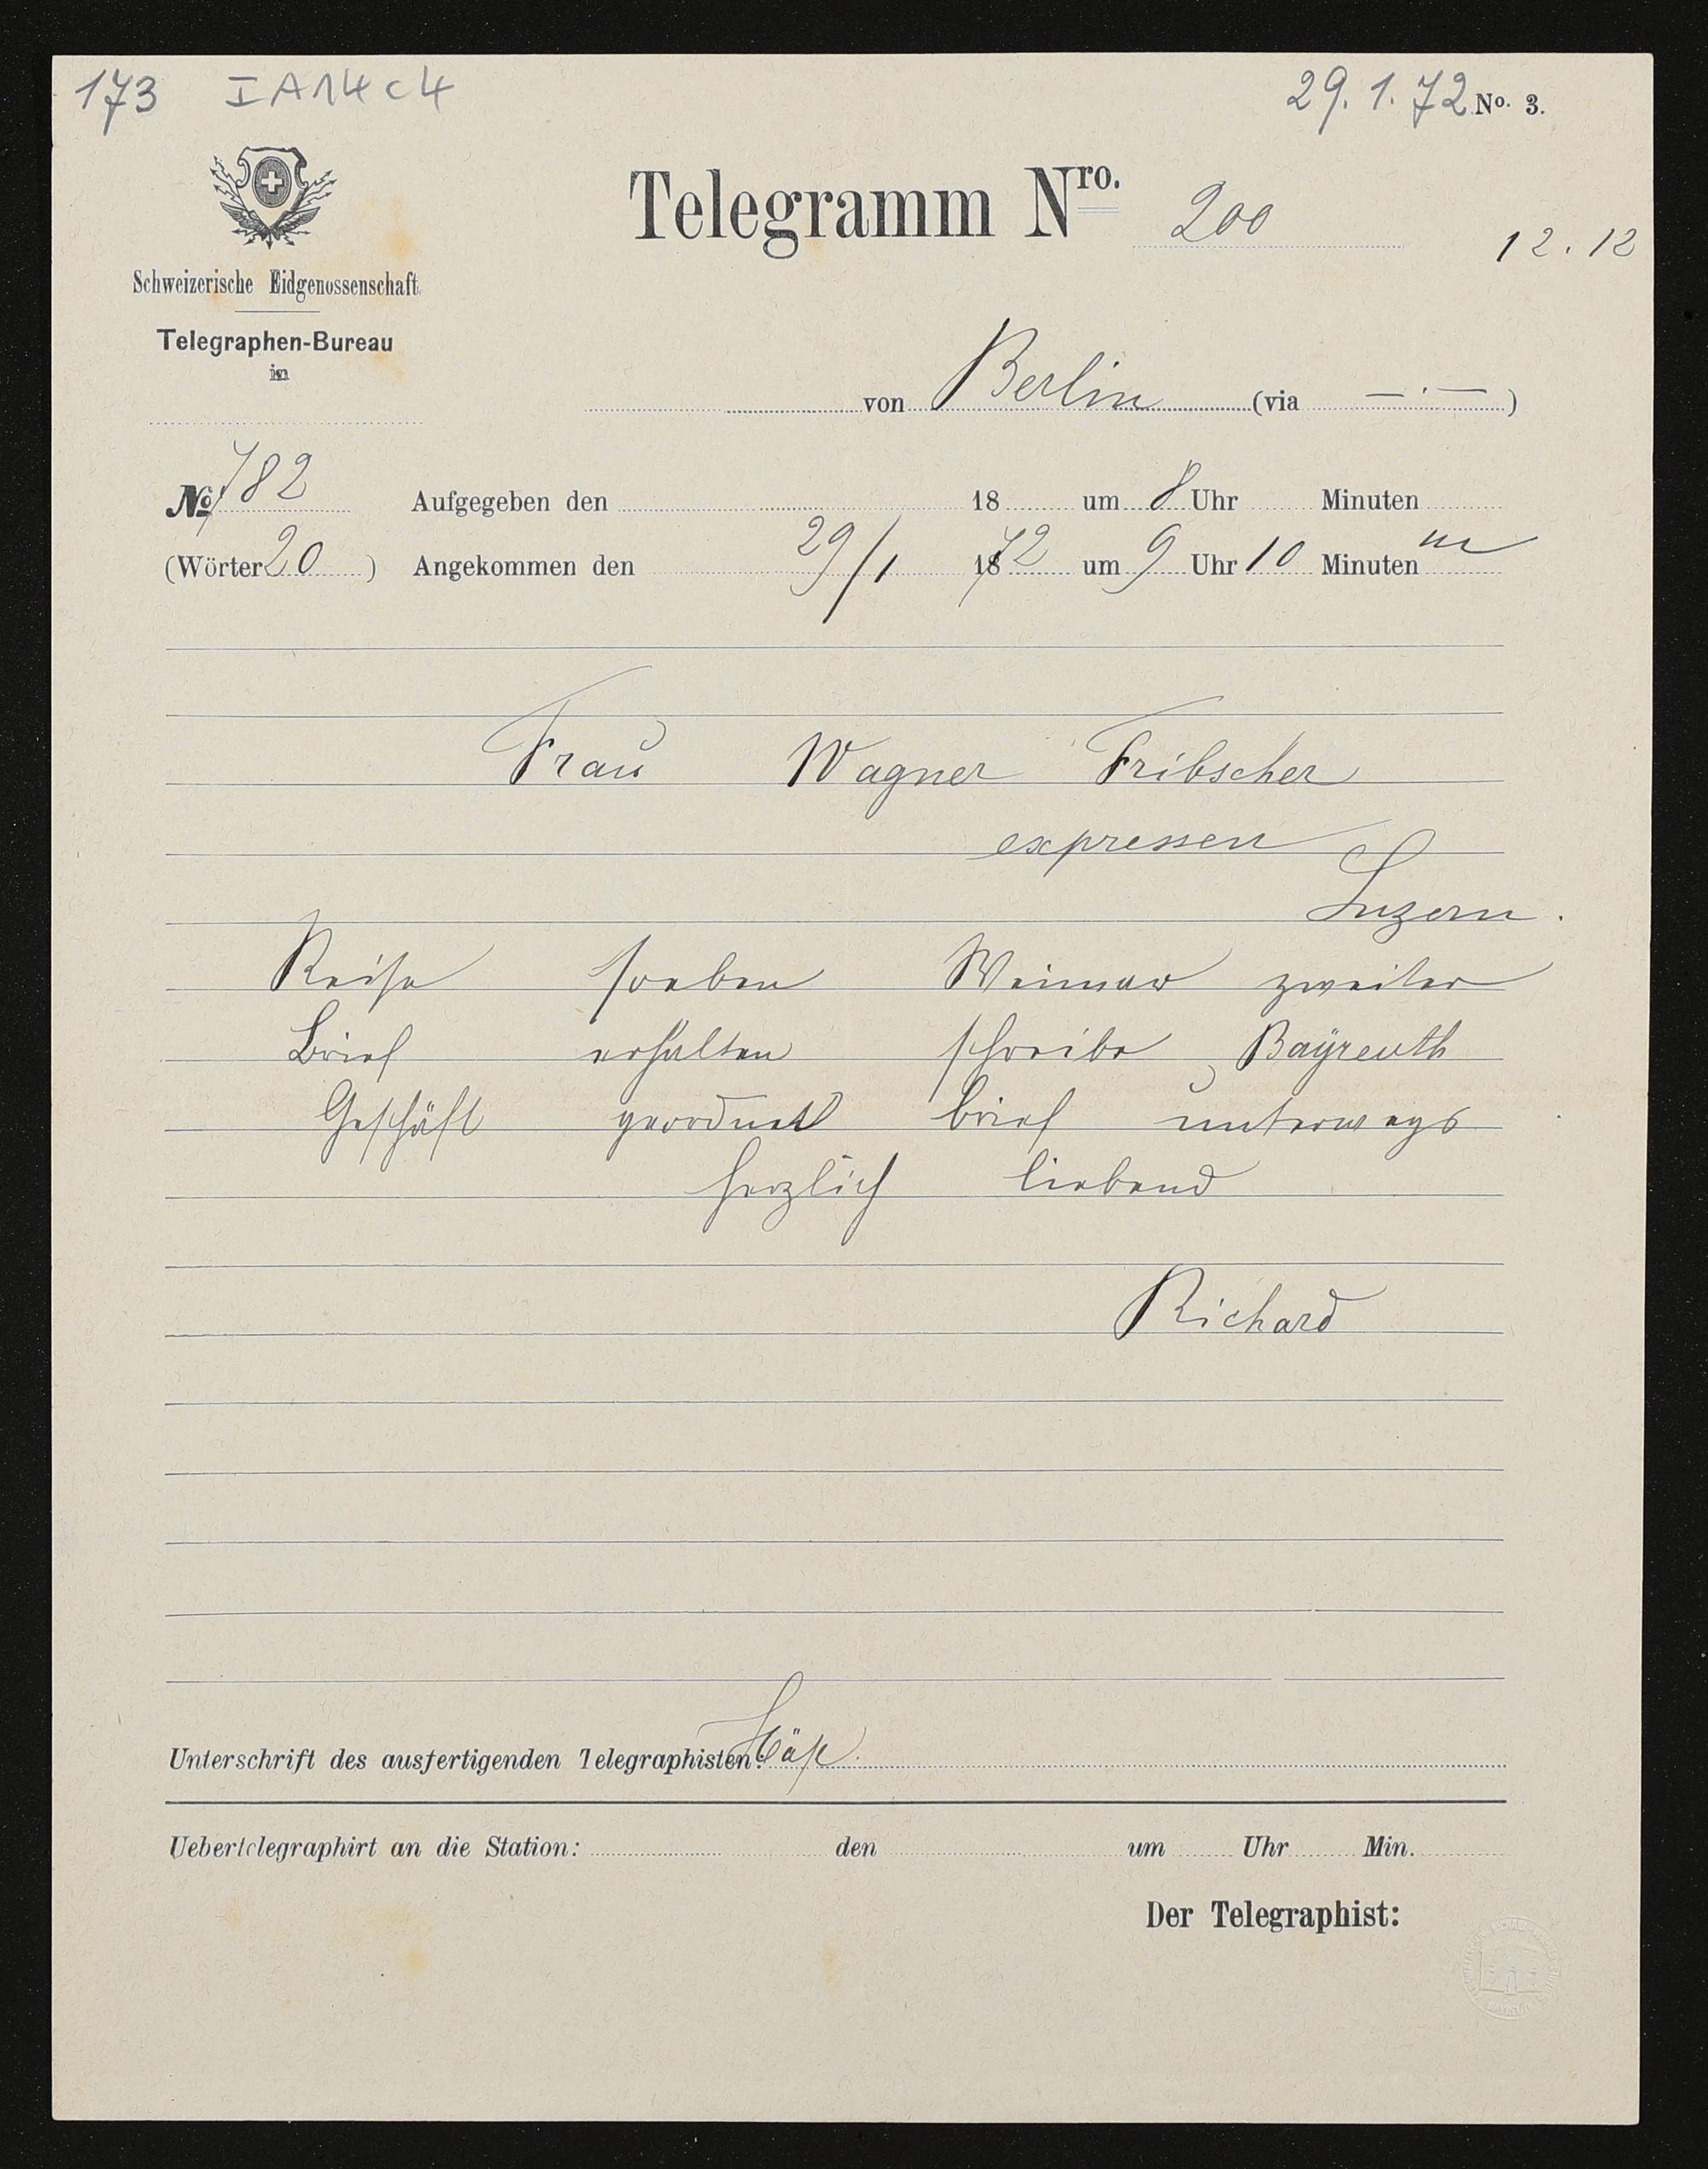 173 I A 14 c 4
29. 1. 72 No. 3.
Telegramm Nro. 200
12.12
Schweizerische Eidgenossenschaft
Telegraphen-Bureau
in
von Berlin (via — . — )
No 782 Aufgegeben den 18 um 8 Uhr Minuten
(Wörter 20 ) Angekommen den 29/1 1872 um 9 Uhr 10 Minuten m
Frau Wagner Fribscher
expressen
Luzern.
Reise soeben Weimar zweiter
Brief erhalten schreibe Bayreuth
Geschäft geordnet brief unterwegs
herzlich liebend
Richard
Unterschrift des ausfertigenden Telegraphisten:
Uebertelegraphirt an die Station: den um Uhr Min.
Der Telegraphist: